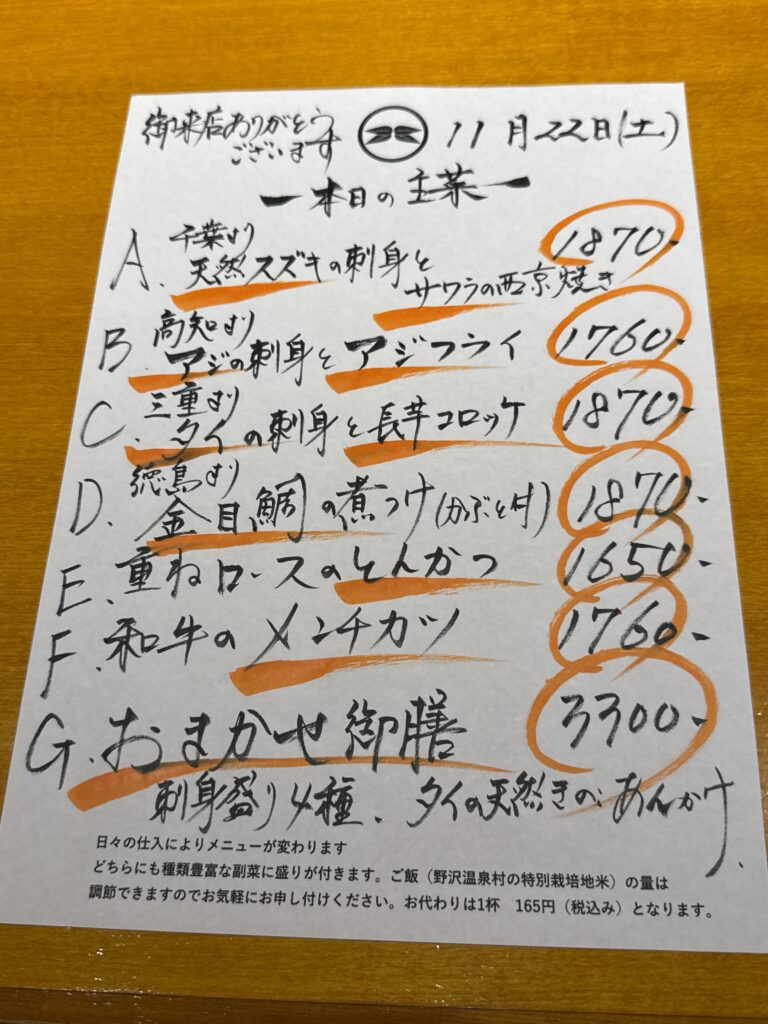 御来店ありがとう
ございます
11月22日(土)
ー本日の主菜ー
千葉より
A. 天然スズキの刺身と
サワラの西京焼き
1870-
高知より
B. アジの刺身とアジフライ 1760-
三重より
C. タイの刺身と長芋コロッケ 1870-
徳島より
D. 金目鯛の煮つけ(かぶと付) 1870-
E. 重ねロースのとんかつ 1650-
F. 和牛のメンチカツ 1760-
G. おまかせ御膳 3300-
刺身盛り4種、タイの天然きのこあんかけ
日々の仕入によりメニューが変わります
どちらにも種類豊富な副菜に盛りが付きます。ご飯（野沢温泉村の特別栽培地米）の量は
調節できますのでお気軽にお申し付けください。お代わりは1杯　165円（税込み）となります。